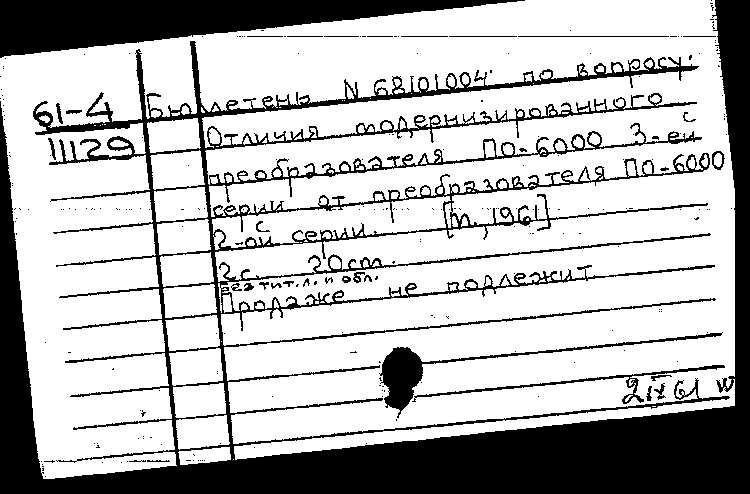 61-4 Бюллетень N 68101004 по вопросу:
11129 Отличия модернизированного
преобразователя ПО-6000 3-ей
серии от преобразователя ПО-6000
2-ой серии. [М., 1961]
2 с. 20 см.
Без тит. л. и обл.
Продаже не подлежит
2 IX 61